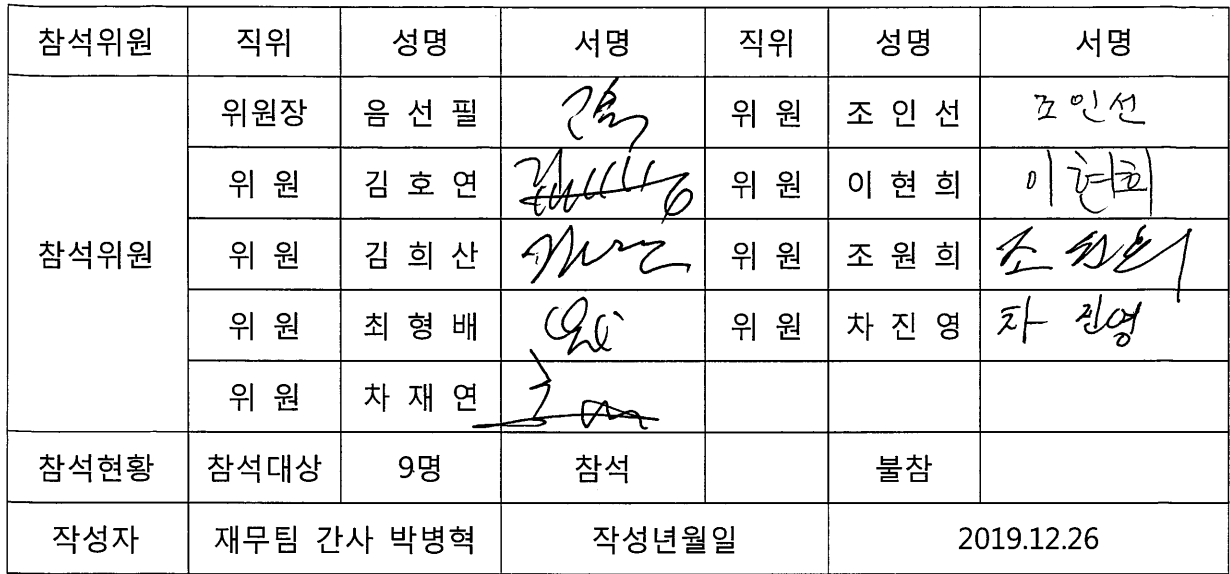 참석위원 직위 성명 서명 직위 성명 서명
위원장 음 선 필 위 원 조 인 선 조인선
위 원 김 호 연 위 원 이 현 희 이현희
참석위원 위 원 김 희 산 위 원 조 원 희 조원희
위 원 최 형 배 위 원 차 진 영 차 진영
위 원 차 재 연
참석현황 참석대상 9명 참석 불참
작성자 재무팀 간사 박병혁 작성년월일 2019.12.26